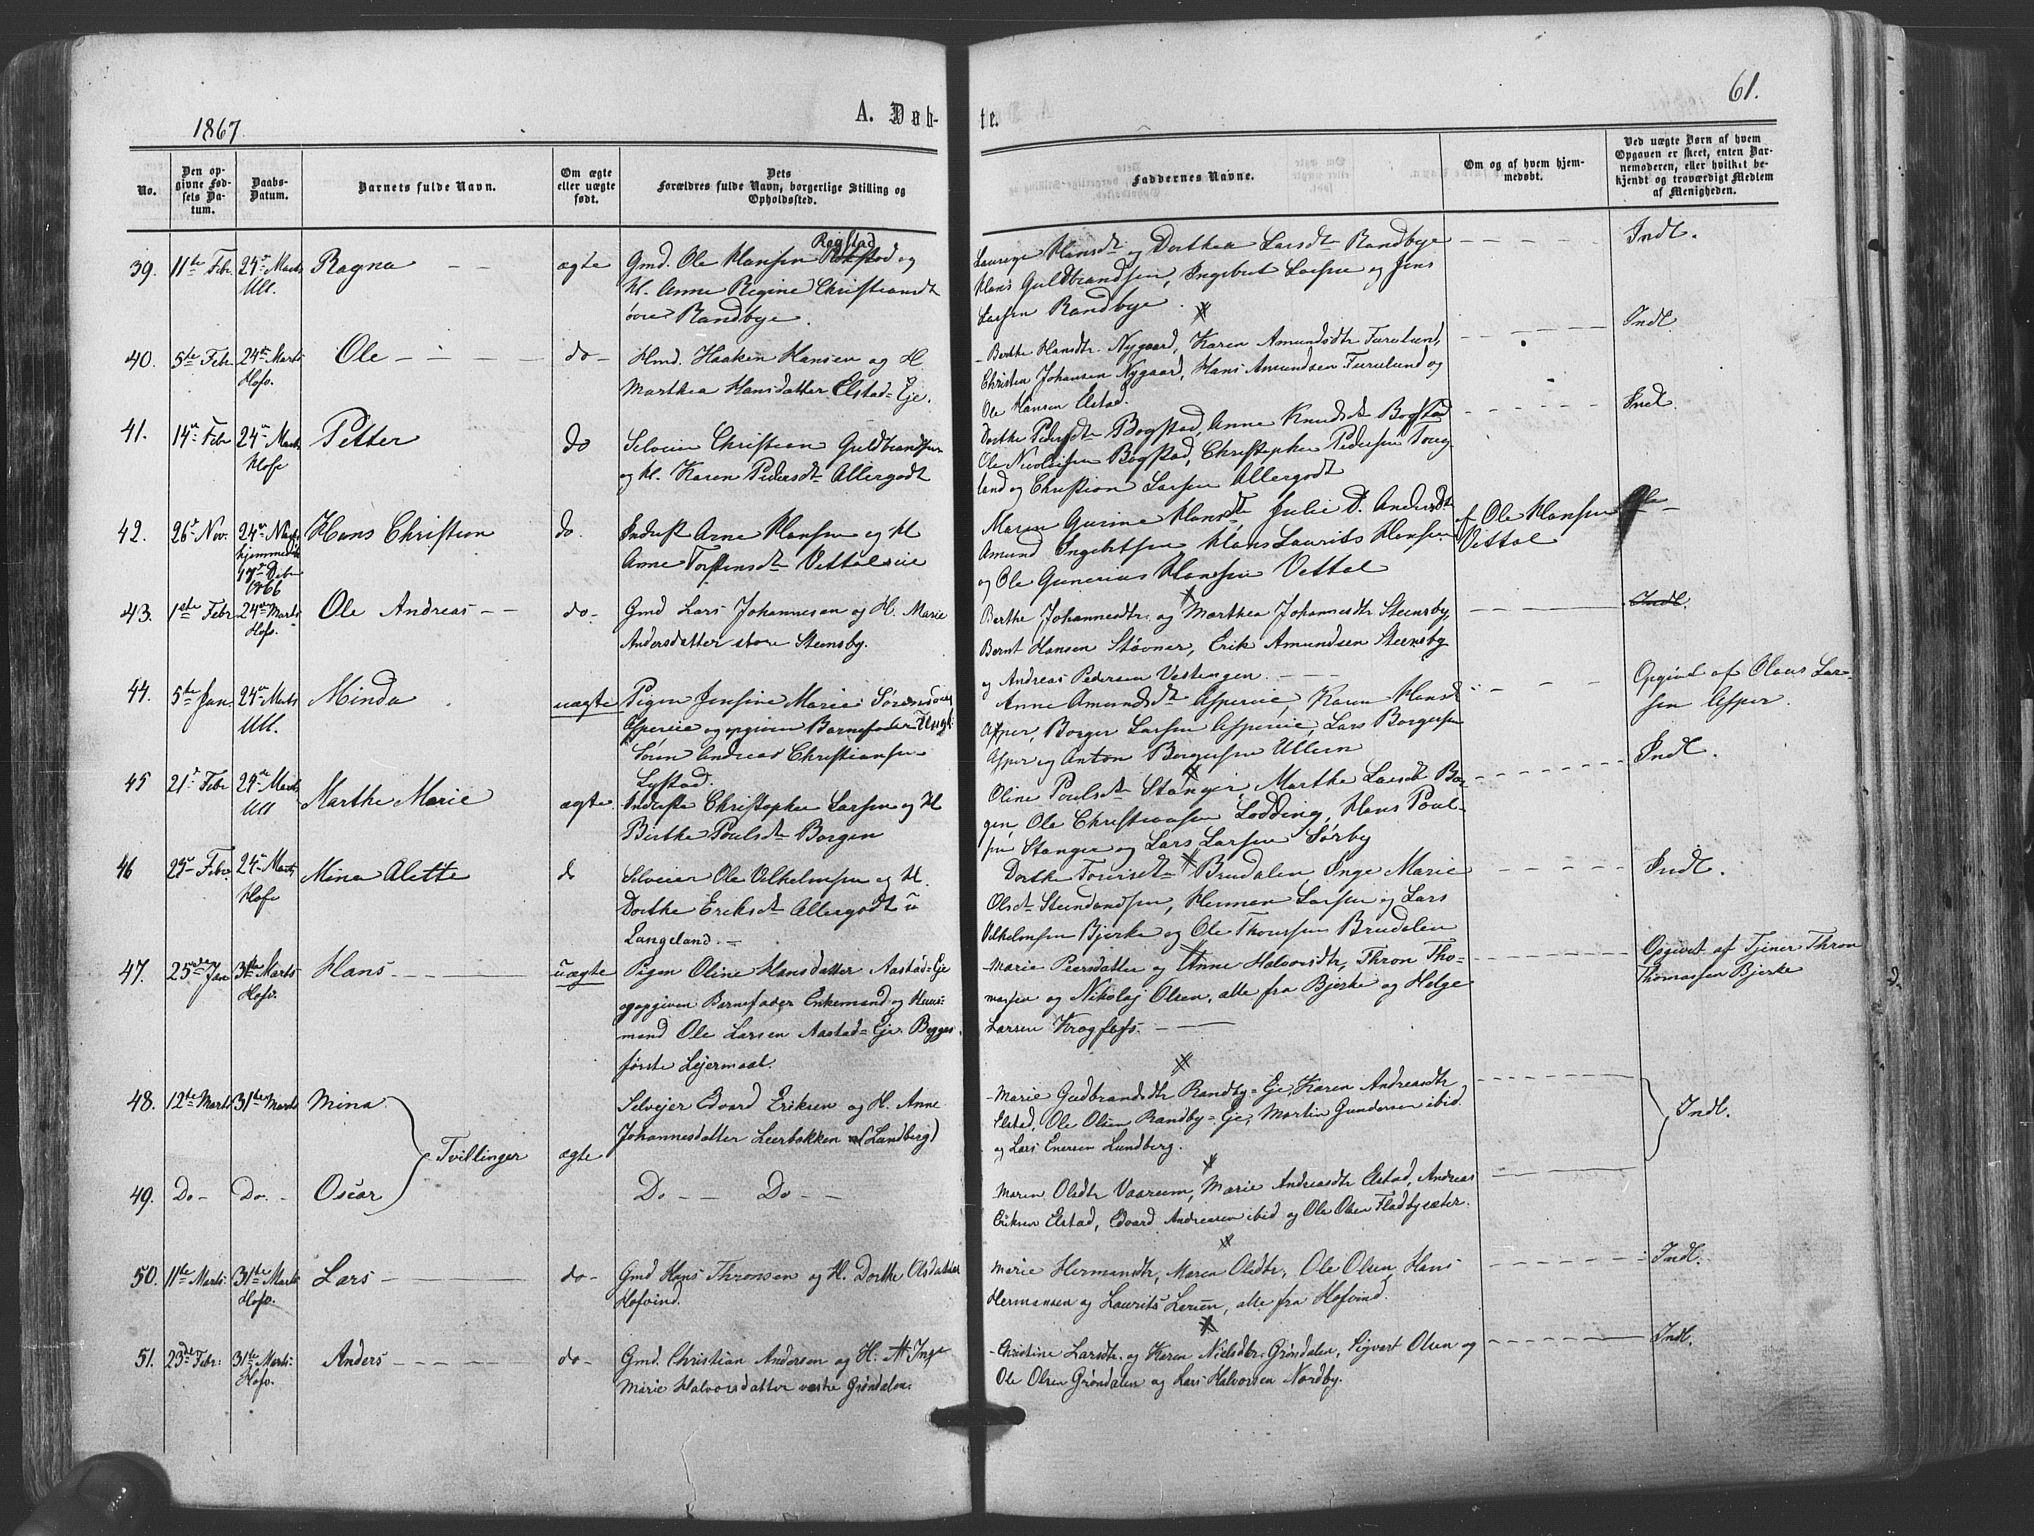 1867
A. Døb-
te.
61.
No.
Den opgivne Fødsels Datum.
Daabs-Datum.
Barnets fulde Navn.
Om ægte eller uægte født.
Dets Forældres fulde Navn, borgerlige Stilling og Opholdssted.
Faddernes Navne.
Om og af hvem hjemmedøbt.
Ved uægte Børn af hvem Opgaven er skeet, enten Barnemoderen, eller hvilket bekjendt og troværdigt Medlem af Menigheden.
39. 11te Febr 24de Marts Ull. Ragna ægte Gmd. Ole Hansen Rogstad og
H. Anne Regine Christiansdt
øvre Randbye.
Hansdt og Dorthea Larsdt Randbye Indl.
Hans Guldbrandsen, Ingebret Larsen og Jens
Larsen Randbye.
40. 5te Febr 24de Marts Hofv. Ole do Hmd. Haaken Hansen og H.
Marthea Hansdatter Elstad-Eje.
Berthe Hansdtr. Nygaard, Karen Amundsdtr Furulund, Indl
Christen Johansen Nygaard, Hans Amundsen Furulund og
Ole Hansen Elstad.
41. 14de Febr 24de Marts Hofv Petter do Selveier Christian Guldbrandsen
og H. Karen Pedersdt Allergodt
Dorthe Pedersdt Bogstad, Anne Knudsdt Bogstad Indl.
Ole Nicolaisen Bogstad, Christopher Pedersen Toug-
land og Christian Larsen Allergodt
42. 26de Nov. 24de Marts hjemmedøbt 17de Debr 1866 Hans Christian do. Inderst Arne Hansen og H
Anne Torstensdt Vettaleie
Maren Gurine Hansdt, Julie D. Andersdt
Amund Ingebretsen Hans Laurits Hansen
og Ole Gunerius Hansen Vettal
af Ole Hansen
Vettal
43. 1ste Febr 24de Marts Hofv. Ole Andreas do- Gmd Lars Johannesen og H. Marie
Andersdatter store Steensby.
Berthe Johannesdtr. og Marthea Johannesdtr Steensby, Indl.
Bernt Hansen Støvner, Erik Amundsen Steensby
og Andreas Pedersen Vestengen.
44. 5te Jan. 24de Marts Ull. Minda uægte Pigen Jensine Marie Sørensdt
Aspereie og opgiven Barnefader Ungk.
Søren Andreas Christiansen
Lystad.
Anne Amundsdt Aspereie, Karen Hansdt
Asper, Borger Larsen Aspereie, Lars Borgersen
Asper og Anton Borgersen Ullern
Opgivet af Olaus Lar-
sen Asper.
45 21de Febr 24de Marts Ull Marthe Marie ægte Inderste Christopher Larsen og H
Berthe Poulsdt Borgen
Oline Poulsdt Stanger, Marthe Larsdt Bor- Indl.
gen Ole Christiansen Lodding, Hans Poul-
sen Stanger og Lars Larsen Sørby
46 23de Febr. 24de Marts Hofv Mina Alette do Selveier Ole Vilhelmsen og H.
Dorthe Eriksdt Allergodt u
Langeland.
Dorthe Toversdt Brudalen, Inge Marie Indl.
Olsdt Herman Larsen og Lars
Vilhelmsen Bjerke og Ole Thoressen Brudalen
47. 25de Jan 31te Marts Hofv. Hans uægte Pigen Oline Hansdatter Aastad-Eje
og opgiven Barnefader Enkemand og Huus-
mand Ole Larsen Aastad-Eje. Begges
første Lejermaal.
Marie Peersdatter og Anne Halvorsdtr, Thron Tho-
massen og Nikolaj Olsen, alle fra Bjerke og Helge
Larsen Krogfoss.
Opgivet af Tjener Thron
Thomassen Bjerke
48. 12te Marts 31te Marts Mina Selvejer Edvard Eriksen og H. Anne
Johannesdatter Leerbakken (Lundberg)
Tvillinger ægte
Marie Gudbrandsdtr Randby-Eje, Karen Andreasdtr
Elstad, Ole Olsen Randby-Eje, Martin Gundersen ibid.
og Lars Enersen Lundberg.
Indl.
49. Do- Do. - Oscar Do - - Do - -
Maren Olsdtr Vaarum, Marie Andreasdtr Elstad, Andreas
Eriksen Elstad, Edvard Andreasen ibid og Ole Olsen Fladbysæter.
50. 11te Marts 31te Marts Hofv. Lars do- Gmd Hans Thronsen og H. Dorthe Olsdatter
Hofvind.
Marie Hermansdtr, Maren Olsdtr, Ole Olsen, Hans Indl.
Hermansen og Laurits Larsen, alle fra Hofvind.
51. 23de Febr. 31te Marts Hofv. Anders do- Gmd. Christian Andersen og H. Inge
Marie Halvorsdatter vestre Grøndalen.
Christine Larsdtr. og Karen Nielsdtr. Grøndalen, Sigvart Olsen og Indl.
Ole Olsen Grøndalen og Lars Halvorsen Nordby.